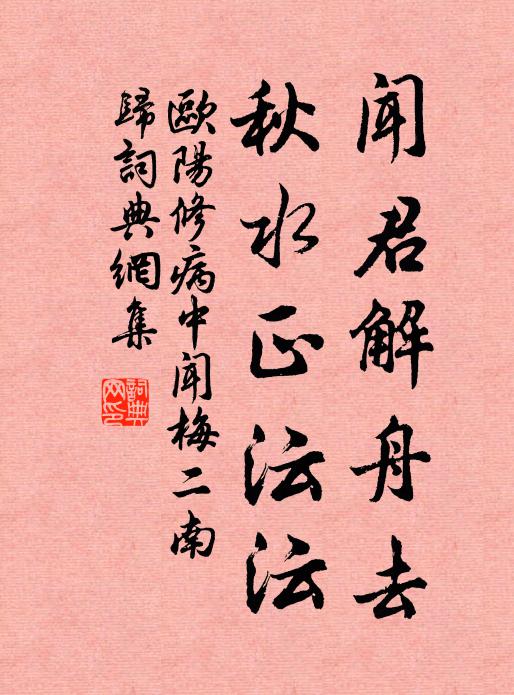 闻君解舟去
秋水正沄沄
歐陽修病中闻梅二南
歸詞典網集
詞典
网印